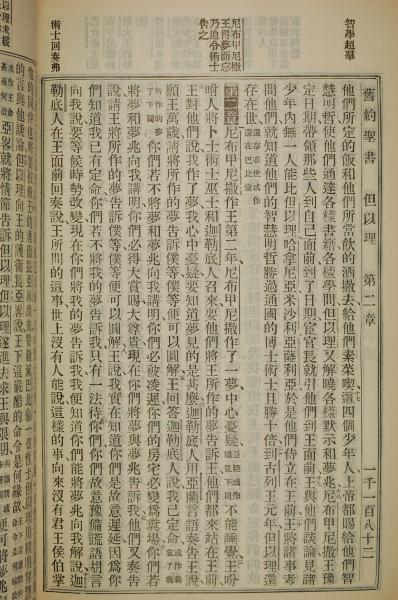 智學超羣
尼布甲尼撒
王得夢而忘
乃迫令術士
告之
術士回奏弗
舊約聖書 但以理 第二章 一千一百八十二
他們所定的飯和他們所當飲的酒撤去給他們素菜喫這四個少年人上帝都賜給他們智
慧明哲使他們通達各樣書籍各樣學問但以理又解曉各樣默示和夢兆尼布甲尼撒王豫
定日期帶領那些人到自己面前到了日期宦官長就引他們到王面前王與他們談論見諸
少年內無一人能比但以理哈拿尼亞米沙利亞薩利亞於是他們侍立在王前王將諸事考
問他們就知道他們的智慧明哲勝過通國的博士術士且勝十倍到古列王元年但以理還
存在世還存在世或作還在巴比倫
第二章尼布甲尼撒作王第二年尼布甲尼撒作了一夢中心憂疑憂疑或作煩亂下同不能睡覺王吩
咐人將卜士術士巫士和迦勒底人召來要他們將王所作的夢告訴王他們都來站在王前
王對他們說我作了夢我心中憂疑要知道夢見的是甚麼迦勒底人用亞蘭言語奏告王說
願王萬歲請將所作的夢告訴僕等僕等便可以圓解王回答迦勒底人說我已定命或作我忘了
所作的夢下同你們若不將夢和夢兆向我講明你們必被凌遲你們的房宅必變為糞場你們若
將夢和夢兆向我講明你們必得大賞賜大尊貴現在你們將夢與夢兆告訴我他們又奏告
說請王將所作的夢告訴僕等僕等便可以圓解王說我實在知道你們是故意遲延因為你
們知道我已有定命你們若不將我的夢告訴我只有一法待你們你們故意豫備謊語胡言
向我說要等候時勢改變現在你們將我的夢告訴我我便知道你們能將夢兆向我解說迦
勒底人在王面前回奏說王所問的這事世上沒有人能說這樣的事向來沒有君王侯伯掌
亞畧就將情節告訴但以理但以理遂進去求王
的言與他說但以理向王的護衛長亞畧說王下這嚴酷的命令是何緣故